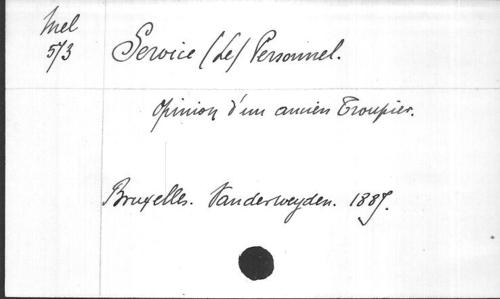 Mel
573
Service (Le) Personnel.
Opinion d'un ancien Troupier.
Bruxelles. Vanderweyden. 1887.